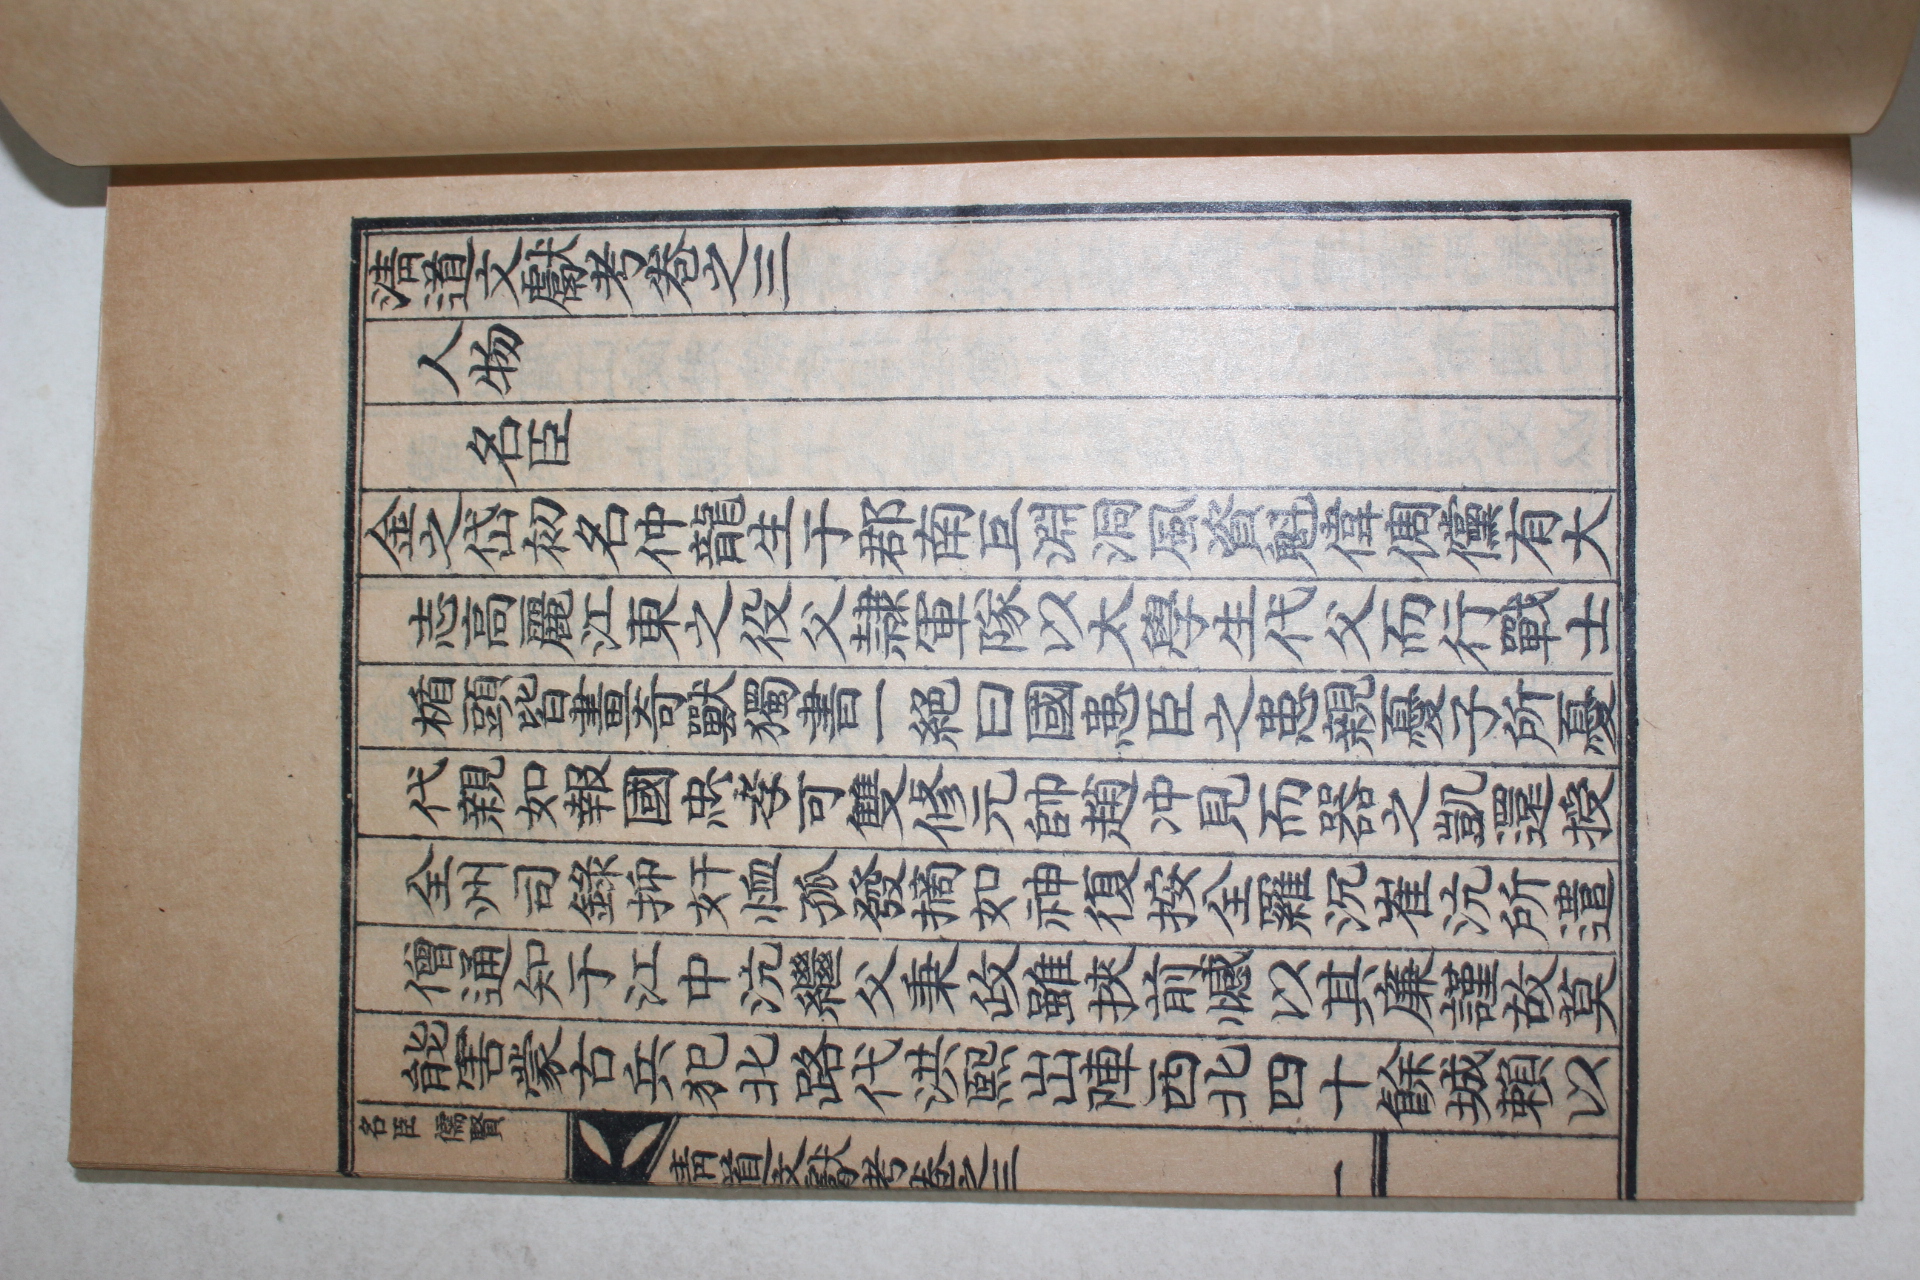 淸道文獻考卷之三
人物
名臣
金之岱初名仲龍生于郡南亘淵洞風資魁偉倜儻有大
志高麗江東之役父隷軍隊以太學生代父而行戰士
楯頭皆畫奇獸獨書一絶曰國患臣之患親憂子所憂
代親如報國忠孝可雙修元帥趙冲見而器之凱還授
全州司錄抑奸恤孤發摘如神復按全羅沉崔沆所遣
僧通知于江中沆繼父秉政雖挾前憾以其廉謹故莫
能害蒙古兵犯北路代洪熙出陣西北四十餘城賴以
名臣 儒賢
淸道文獻考卷之三 一